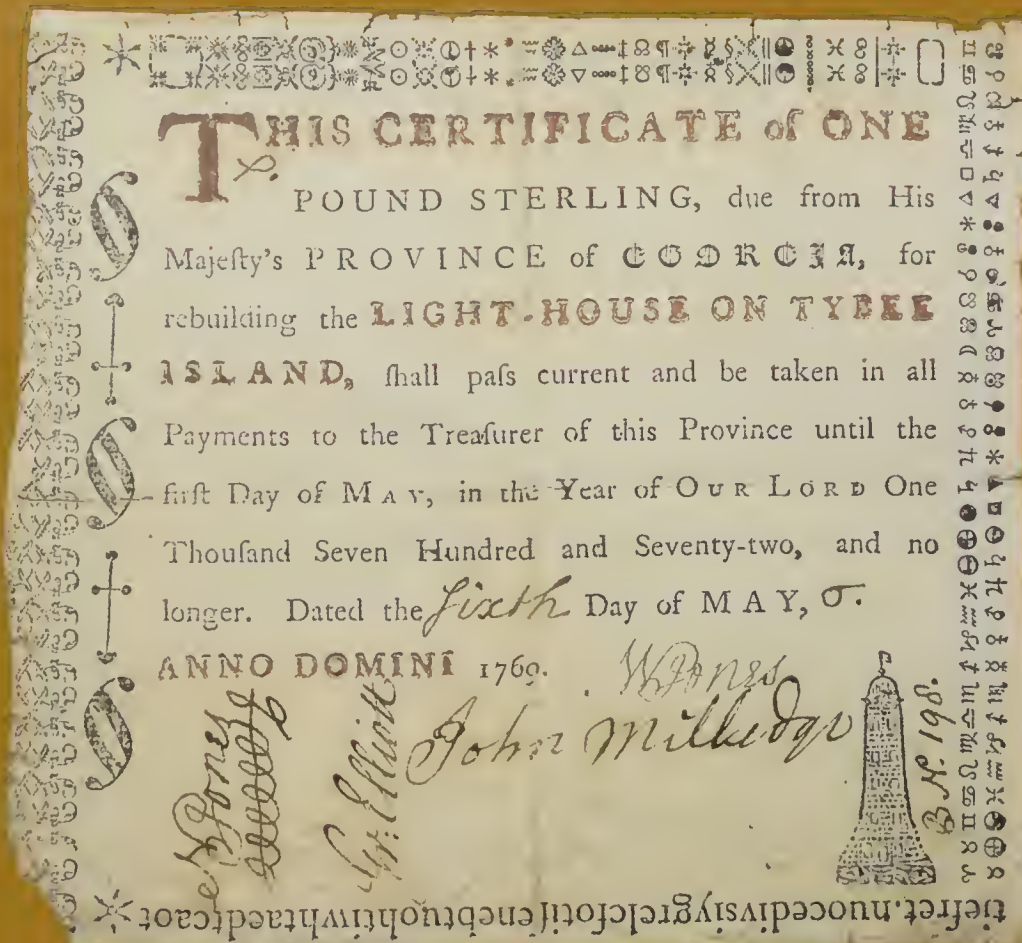 THIS CERTIFICATE of ONE
POUND STERLING, due from His
Majeſty's PROVINCE of GEORGIA, for
rebuilding the LIGHT-HOUSE ON TYBEE
ISLAND, ſhall paſs current and be taken in all
Payments to the Treaſurer of this Province until the
firſt Day of MAY, in the Year of OUR LORD One
Thouſand Seven Hundred and Seventy-two, and no
longer. Dated the ſixth Day of MAY, σ.
ANNO DOMINI 1769.
W Jones
John Milledge
N Jones
Gr. Elliott
B N. 198.